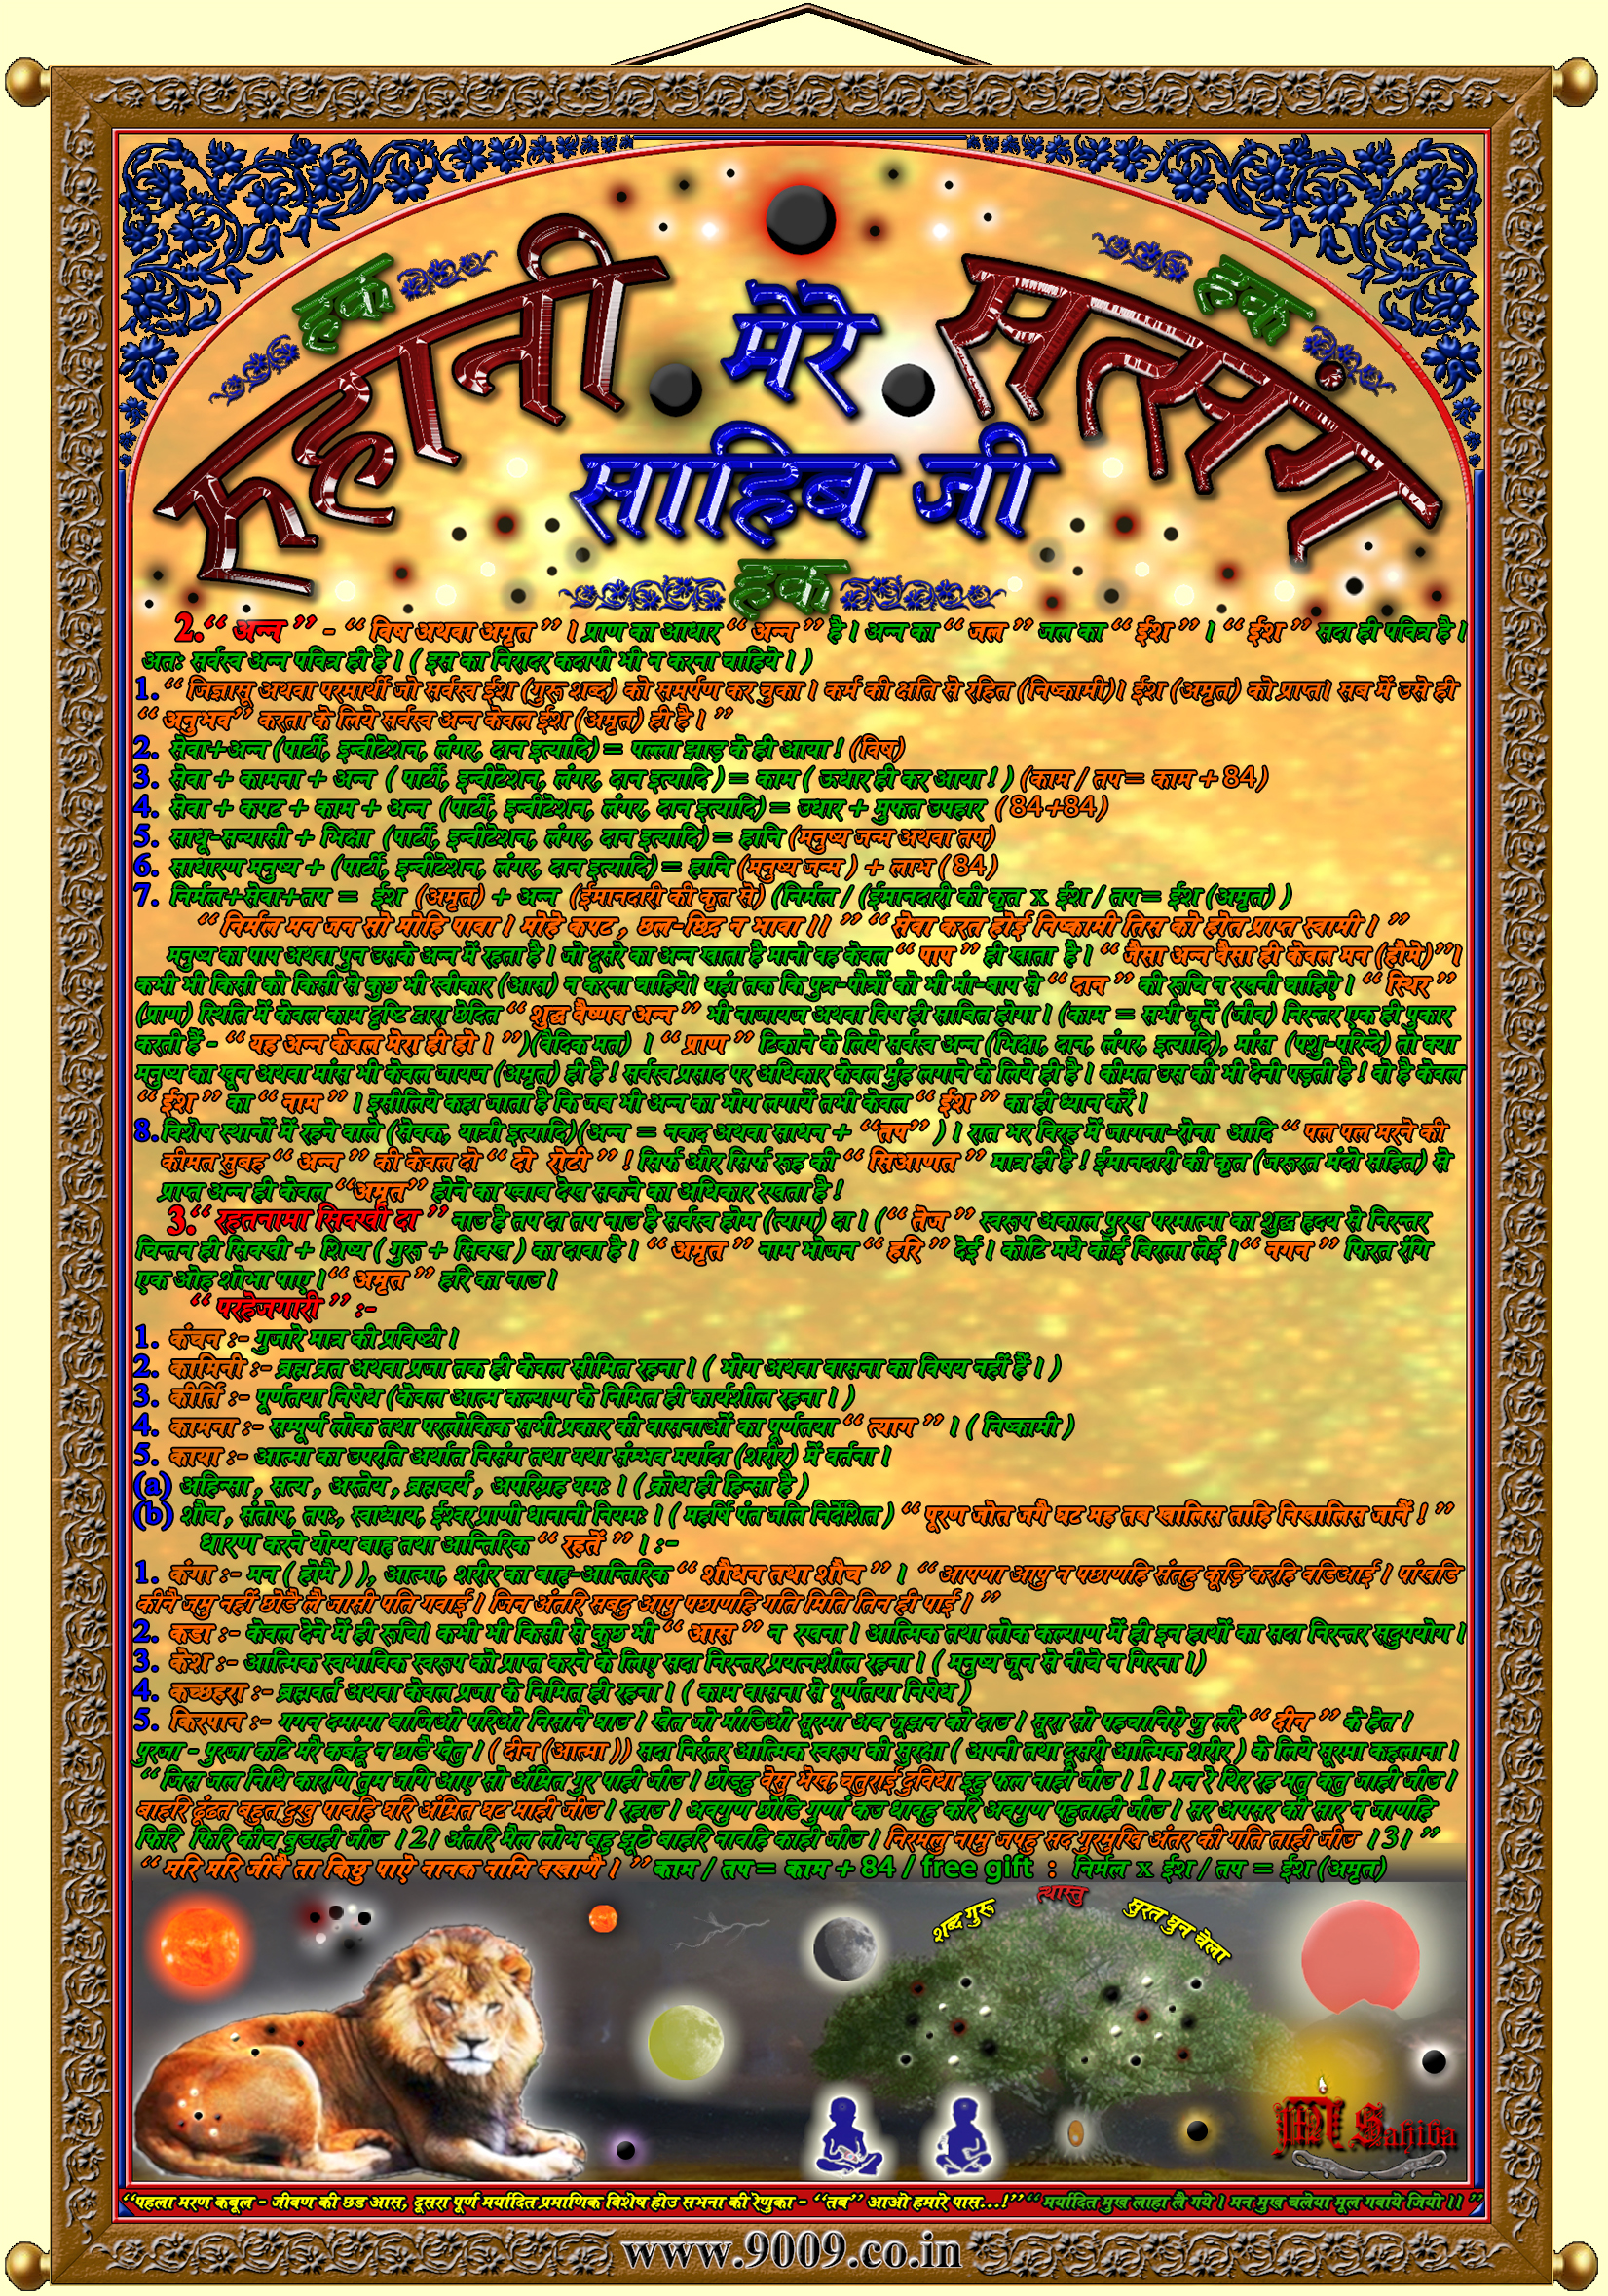 हक
हक
रुहानी
मेरे
सत्संग
साहिब जी
हक
2.“ अन्न ” - “ विष अथवा अमृत ” । प्राण का आधार “ अन्न ” है । अन्न का “ जल ” जल का “ ईश ” । “ ईश ” सदा ही पवित्र है ।
अतः सर्वस्व अन्न पवित्र ही है । ( इस का निरादर कदापी भी न करना चाहिये । )
1. “ जिज्ञासू अथवा परमार्थी जो सर्वस्व ईश (गुरू शब्द) को समर्पण कर चुका । कर्म की क्षति से रहित (निष्कामी)। ईश (अमृत) को प्राप्त। सब में उसे ही
“ अनुभव” करता के लिये सर्वस्व अन्न केवल ईश (अमृत) ही है । ”
2. सेवा+अन्न (पार्टी, इन्वीटेशन, लंगर, दान इत्यादि) = पल्ला झाड़ के ही आया ! (विष)
3. सेवा + कामना + अन्न ( पार्टी, इन्वीटेशन, लंगर, दान इत्यादि ) = काम ( ऊधार ही कर आया ! ) (काम / तप= काम + 84)
4. सेवा + कपट + काम + अन्न (पार्टी, इन्वीटेशन, लंगर, दान इत्यादि) = उधार + मुफत उपहार ( 84+84)
5. साधू-सन्यासी + भिक्षा (पार्टी, इन्वीटेशन, लंगर, दान इत्यादि) = हानि (मनुष्य जन्म अथवा तप)
6. साधारण मनुष्य + (पार्टी, इन्वीटेशन, लंगर, दान इत्यादि) = हानि (मनुष्य जन्म ) + लाभ ( 84)
7. निर्मल+सेवा+तप = ईश (अमृत) + अन्न (ईमानदारी की कृत से) (निर्मल / (ईमानदारी की कृत x ईश / तप= ईश (अमृत) )
“ निर्मल मन जन सो मोहि पावा । मोहे कपट , छल-छिद्र न भावा ।। ” “ सेवा करत होई निष्कामी तिस को होत प्राप्त स्वामी । ”
मनुष्य का पाप अथवा पुन उसके अन्न में रहता है । जो दूसरे का अन्न खाता है मानो वह केवल “ पाप ” ही खाता है । “ जैसा अन्न वैसा ही केवल मन (हौमे)”।
कभी भी किसी को किसी से कुछ भी स्वीकार (आस) न करना चाहिये। यहां तक कि पुत्र-पौत्रों को भी मां-बाप से “ दान ” की रूचि न रखनी चाहिऐ । “ स्थिर ”
(प्राण) स्थिति में केवल काम दृष्टि द्वारा छेदित “ शुद्ध वैष्णव अन्न ” भी नाजायज अथवा विष ही साबित होगा । (काम = सभी जूनें (जीव) निरन्तर एक ही पुकार
करती हैं - “ यह अन्न केवल मेरा ही हो । ”)(वैदिक मत) । “ प्राण ” टिकाने के लिये सर्वस्व अन्न (भिक्षा, दान, लंगर, इत्यादि), मांस (पशु-परिन्दे) तो क्या
मनुष्य का खून अथवा मांस भी केवल जायज (अमृत) ही है ! सर्वस्व प्रसाद पर अधिकार केवल मुंह लगाने के लिये ही है । कीमत उस की भी देनी पड़ती है ! वो है केवल
“ ईश ” का “ नाम ” । इसीलिये कहा जाता है कि जब भी अन्न का भोग लगायें तभी केवल “ ईश ” का ही ध्यान करें ।
8.विशेष स्थानों में रहने वाले (सेवक, यात्री इत्यादि)(अन्न = नकद अथवा साधन + “तप” ) । रात भर विरह में जागना-रोना आदि “ पल पल मरने की
कीमत सुबह “ अन्न ” की केवल दो “ दो रोटी ” ! सिर्फ और सिर्फ रूह की “ सिआणत ” मात्र ही है ! ईमानदारी की कृत (जरूरत मंदो सहित) से
प्राप्त अन्न ही केवल “अमृत” होने का ख्वाब देख सकने का अधिकार रखता है !
3.“ रहतनामा सिक्खी दा ” नाउ है तप दा तप नाउ है सर्वस्व होम (त्याग) दा । (“ तेज ” स्वरूप अकाल पुरख परमात्मा का शुद्ध हृदय से निरन्तर
चिन्तन ही सिक्खी + शिष्य ( गुरू + सिक्ख ) का दावा है । “ अमृत ” नाम भोजन “ हरि ” देई । कोटि मधे कोई बिरला लेई ।“ नगन ” फिरत रंगि
एक ओह शोभा पाए ।“ अमृत ” हरि का नाउ ।
“ परहेजगारी ” :-
1. कंचन :- गुजारे मात्र की प्रविष्टी ।
2. कामिनी :- ब्रह्म व्रत अथवा प्रजा तक ही केवल सीमित रहना । ( भोग अथवा वासना का विषय नहीं हैं । )
3. कीर्ति :- पूर्णतया निषेध (केवल आत्म कल्याण के निमित ही कार्यशील रहना । )
4. कामना :- सम्पूर्ण लोक तथा परलोकिक सभी प्रकार की वासनाओं का पूर्णतया “ त्याग ” । ( निष्कामी )
5. काया :- आत्मा का उपरति अर्थात निसंग तथा यथा संम्भव मर्यादा (शरीर) में वर्तना ।
(a) अहिन्सा , सत्य , अस्तेय , ब्रह्मचर्य , अपरिग्रह यमः । ( क्रोध ही हिन्सा है )
(b) शौच , संतोष, तपः, स्वाध्याय, ईश्वर प्राणी धानानी नियमः । ( महर्षि पंत जलि निर्देशित ) “ पूरण जोत जगै घट मह तब खालिस ताहि निखालिस जानैं ! ”
धारण करने योग्य बाह तथा आन्तिरिक “ रहतें ” । :-
1. कंगा :- मन ( होमै ) ), आत्मा, शरीर का बाह-आन्तिरिक “ शौधन तथा शौच ” । “ आपणा आपु न पछाणहि संतहु कूड़ि करहि वडिआई । पांखंडि
कीनै जमु नहीं छोडै लै जासी पति गवाई । जिन अंतरि सबदु आपु पछाणहि गति मिति तिन ही पाई । ”
2. कडा :- केवल देने में ही रूचि। कभी भी किसी से कुछ भी “ आस ” न रखना । आत्मिक तथा लोक कल्याण में ही इन हाथों का सदा निरन्तर सदुपयोग ।
3. केश :- आत्मिक स्वभाविक स्वरूप को प्राप्त करने के लिए सदा निरन्तर प्रयत्नशील रहना । ( मनुष्य जून से नीचे न गिरना ।)
4. कच्छहरा :- ब्रह्मवर्त अथवा केवल प्रजा के निमित ही रहना । ( काम वासना से पूर्णतया निषेध )
5. किरपान :- गगन दमामा वाजिओ परिओ निसानै घाउ । खेत जो मांडिओ सूरमा अब जूझन को दाउ । सूरा सो पहचानिऐ जु लरै “ दीन ” के हेत ।
पुरजा - पुरजा कटि मरै कबंहू न छाडै खेतु । ( दीन (आत्मा )) सदा निरंतर आत्मिक स्वरूप की सुरक्षा ( अपनी तथा दूसरी आत्मिक शरीर ) के लिये सूरमा कहलाना ।
“ जिस जल निधि कारणि तुम जगि आए सो अंम्रित गुर पाही जीउ । छोडहु वेसु भेख, चतुराई दुविधा इहु फल नाही जीउ । 1। मन रे थिर रह मतु कतु जाही जीउ ।
बाहरि ढूंढत बहुत दुखु पावहि घरि अंम्रित घट माही जीउ । रहाउ । अवगुण छोडि गुणां कउ धावहु करि अवगुण पछुताही जीउ । सर अपसर की सार न जाणहि
फिरि फिरि कीच बुडाही जीउ । 2। अंतरि मैल लोभ बहु झूठे बाहरि नावहि काही जीउ । निरमलु नामु जपहु सद गुरमुखि अंतर की गति ताही जीउ । 3। ”
“ मरि मरि जीवै ता किछु पाऐ नानक नामि वखाणै । ” काम / तप= काम + 84 / free gift : निर्मल x ईश / तप = ईश (अमृत)
शब्द गुरू
त्थास्तु
सुरत धुन चेला
Sahiba
“पहला मरण कबूल - जीवण की छड आस, दूसरा पूर्ण मर्यादित प्रमाणिक विशेष होउ सभना की रेणुका - “तब” आओ हमारे पास...!” “ मर्यादित मुख लाहा लै गये । मन मुख चलेया मूल गवाये जियो ।। ”
www.9009.co.in